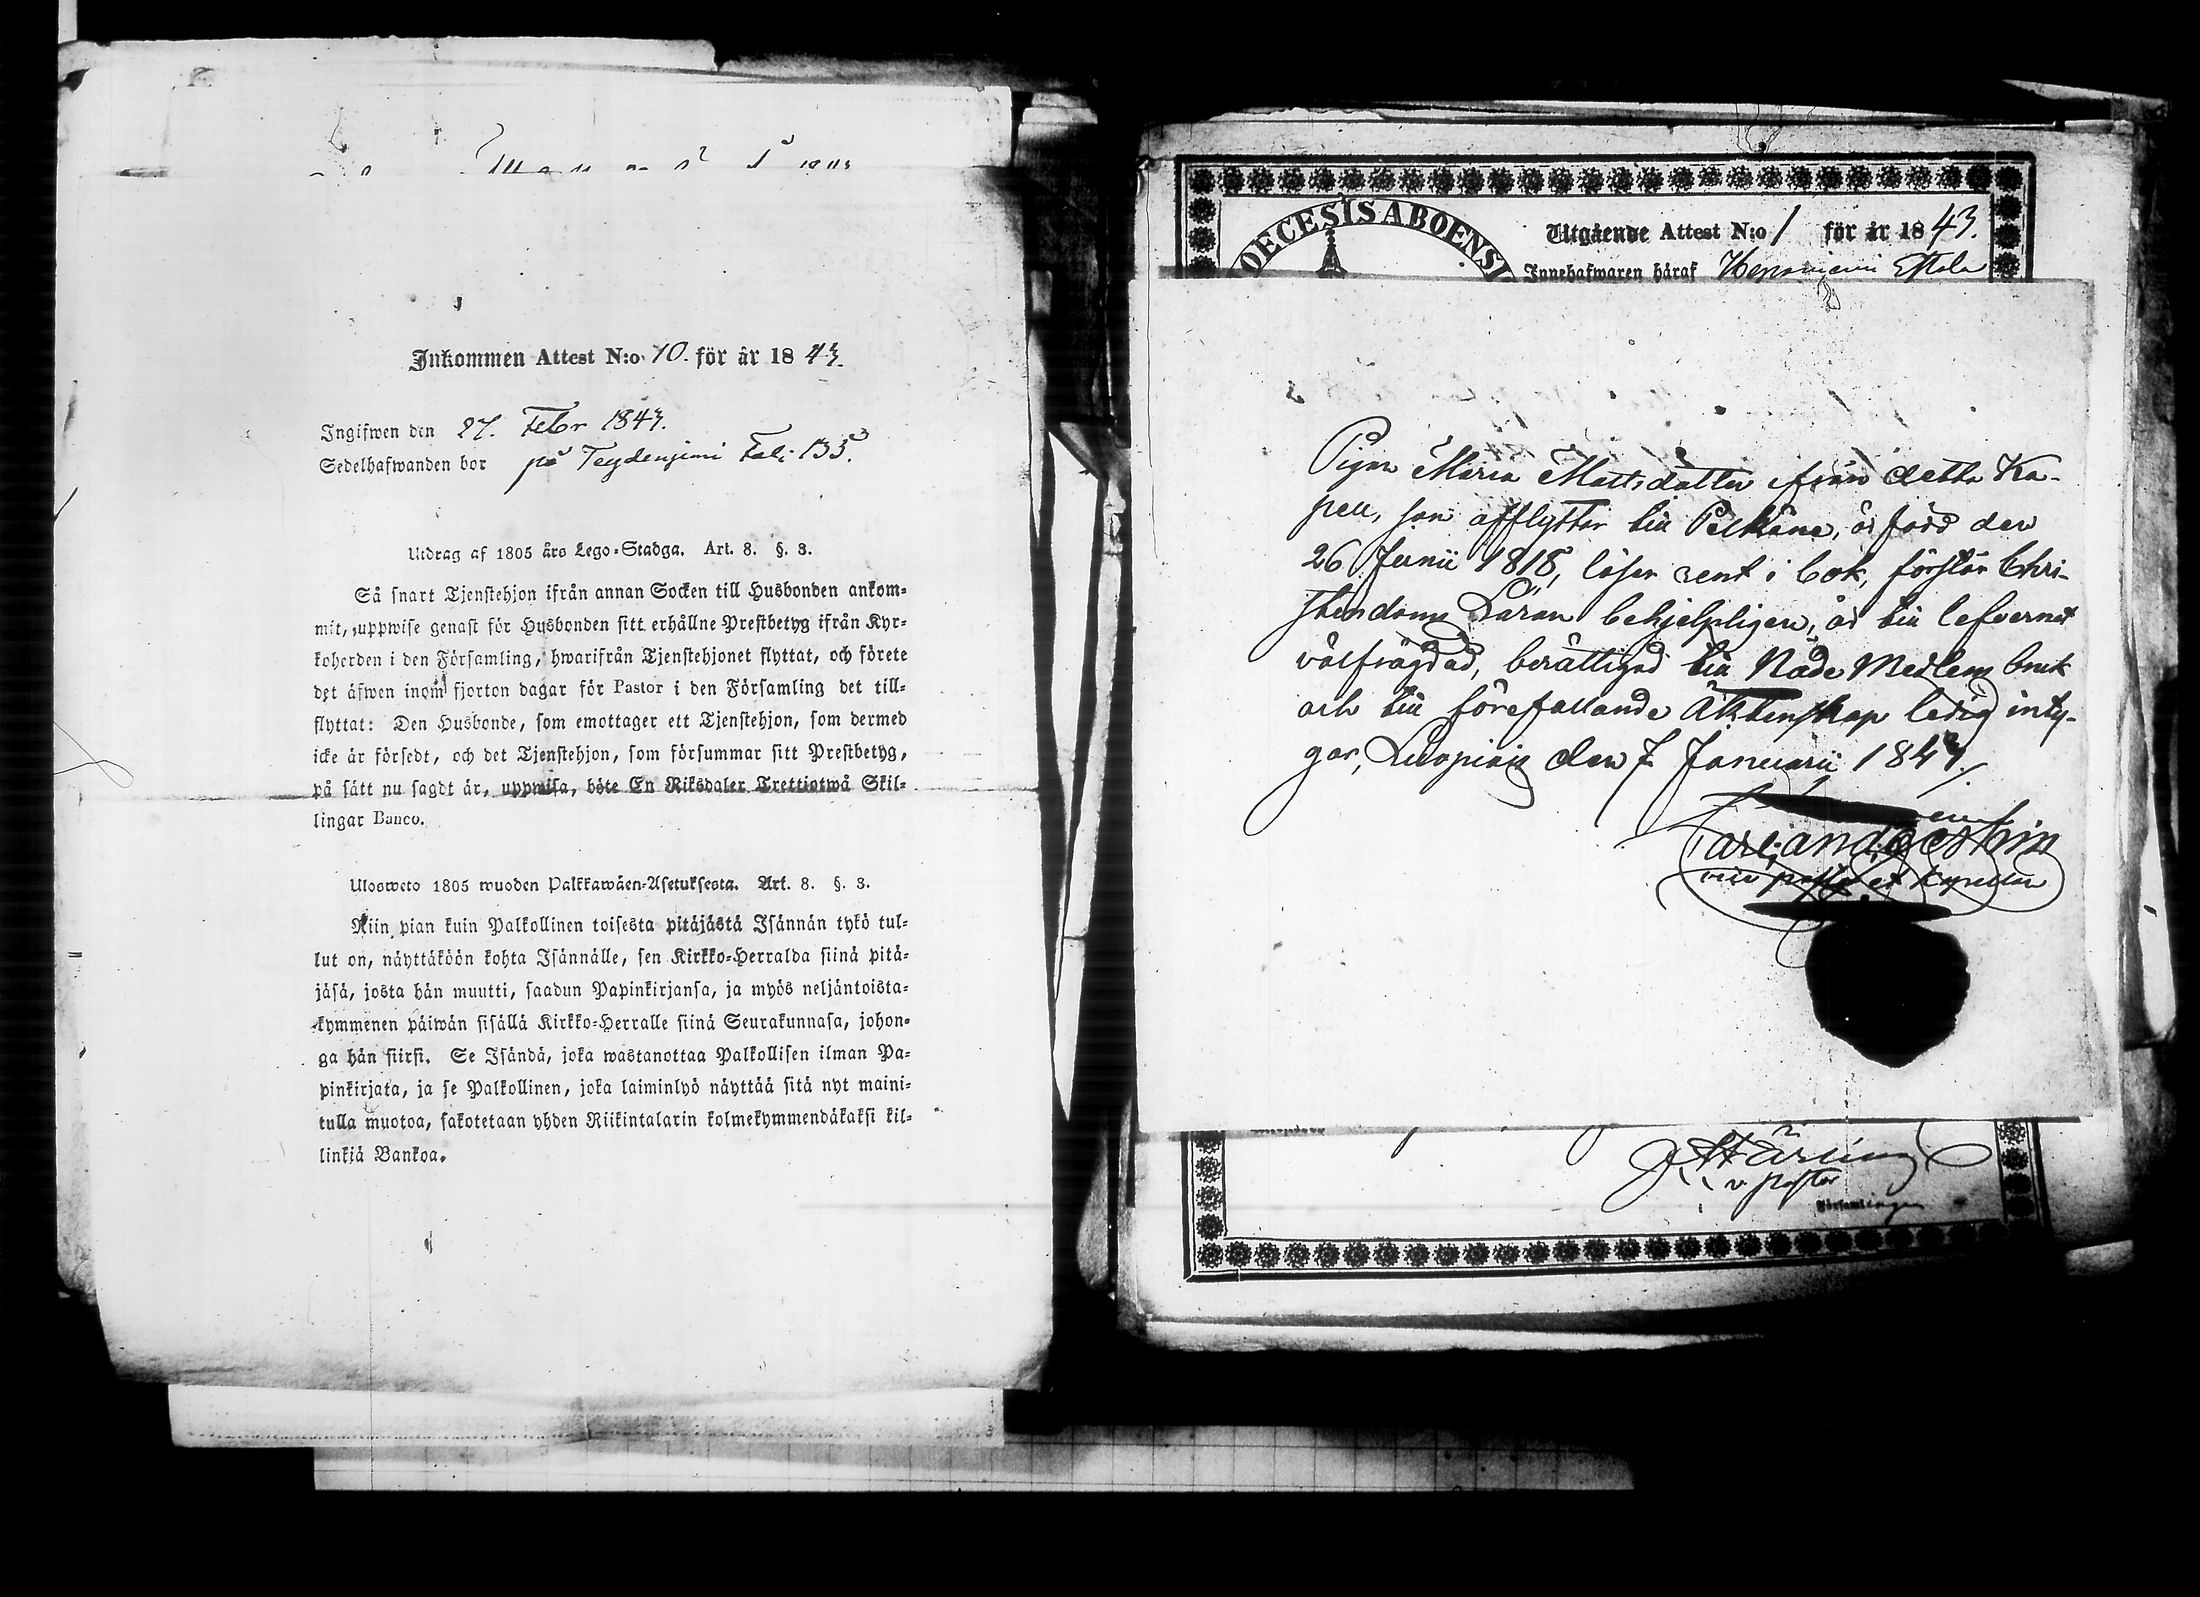 Inkommen Attest N:o 10. för år 1843.
Ingifwen den 27. Febr 1843.
Sedelhafwanden bor på
Utdrag af 1805 års Lego-Stadga. Art. 8. §. 3.
Så snart Tjenstehjon ifrån annan Socken till Husbonden ankom-
mit, uppwise genast för Husbonden sitt erhållne Prestbetyg ifrån Kyr-
koherden i den Församling, hwarifrån Tjenstehjonet flyttat, och förete
det äfwen inom fjorton dagar för Pastor i den Församling det till-
flyttat: Den Husbonde, som emottager ett Tjenstehjon, som dermed
icke är försedt, och det Tjenstehjon, som försummar sitt Prestbetyg,
på sätt nu sagdt är, uppwisa, böte En Riksdaler Trettiotwå Skil-
lingar Banco.
Ulosweto 1805 wuoden Palkkawäen-Asetuksesta. Art. 8. §. 3.
Niin pian kuin Palkollinen toisesta pitäjästä Isännän tykö tul-
lut on, näyttäköön kohta Isännälle, sen Kirkko-Herralda siinä pitä-
jäsä, josta hän muutti, saadun Papinkirjansa, ja myös neljäntoista-
kymmenen päiwän sisällä Kirkko-Herralle siinä Seurakunnasa, johon-
ga hän siirsi. Se Isändä, joka wastanottaa Palkollisen ilman Pa-
pinkirjata, ja se Palkollinen, joka laiminlyö näyttää sitä nyt maini-
tulla muotoa, sakotetaan yhden Riikintalarin kolmekymmendäkaksi kil-
linkiä Bankoa.
DIOECESIS ABOENSIS
Utgående Attest N:o 1 för år 1843.
Innehafwaren häraf
Pigan Maria Mattsdotter ifrån detta Ka-
pell, som afflyttar till Pelkäne, är född den
26 Junii 1818, läser rent i bok, förstår Chri-
stendoms Läran behjelpligen, är till lefvernet
välfrägdad, berättigad till Nåde Medlens bruk
och till förefallande Äktenskap ledig inty-
gar, Luopiois den 7 Januarii 1843.
v pastor
Församlingen